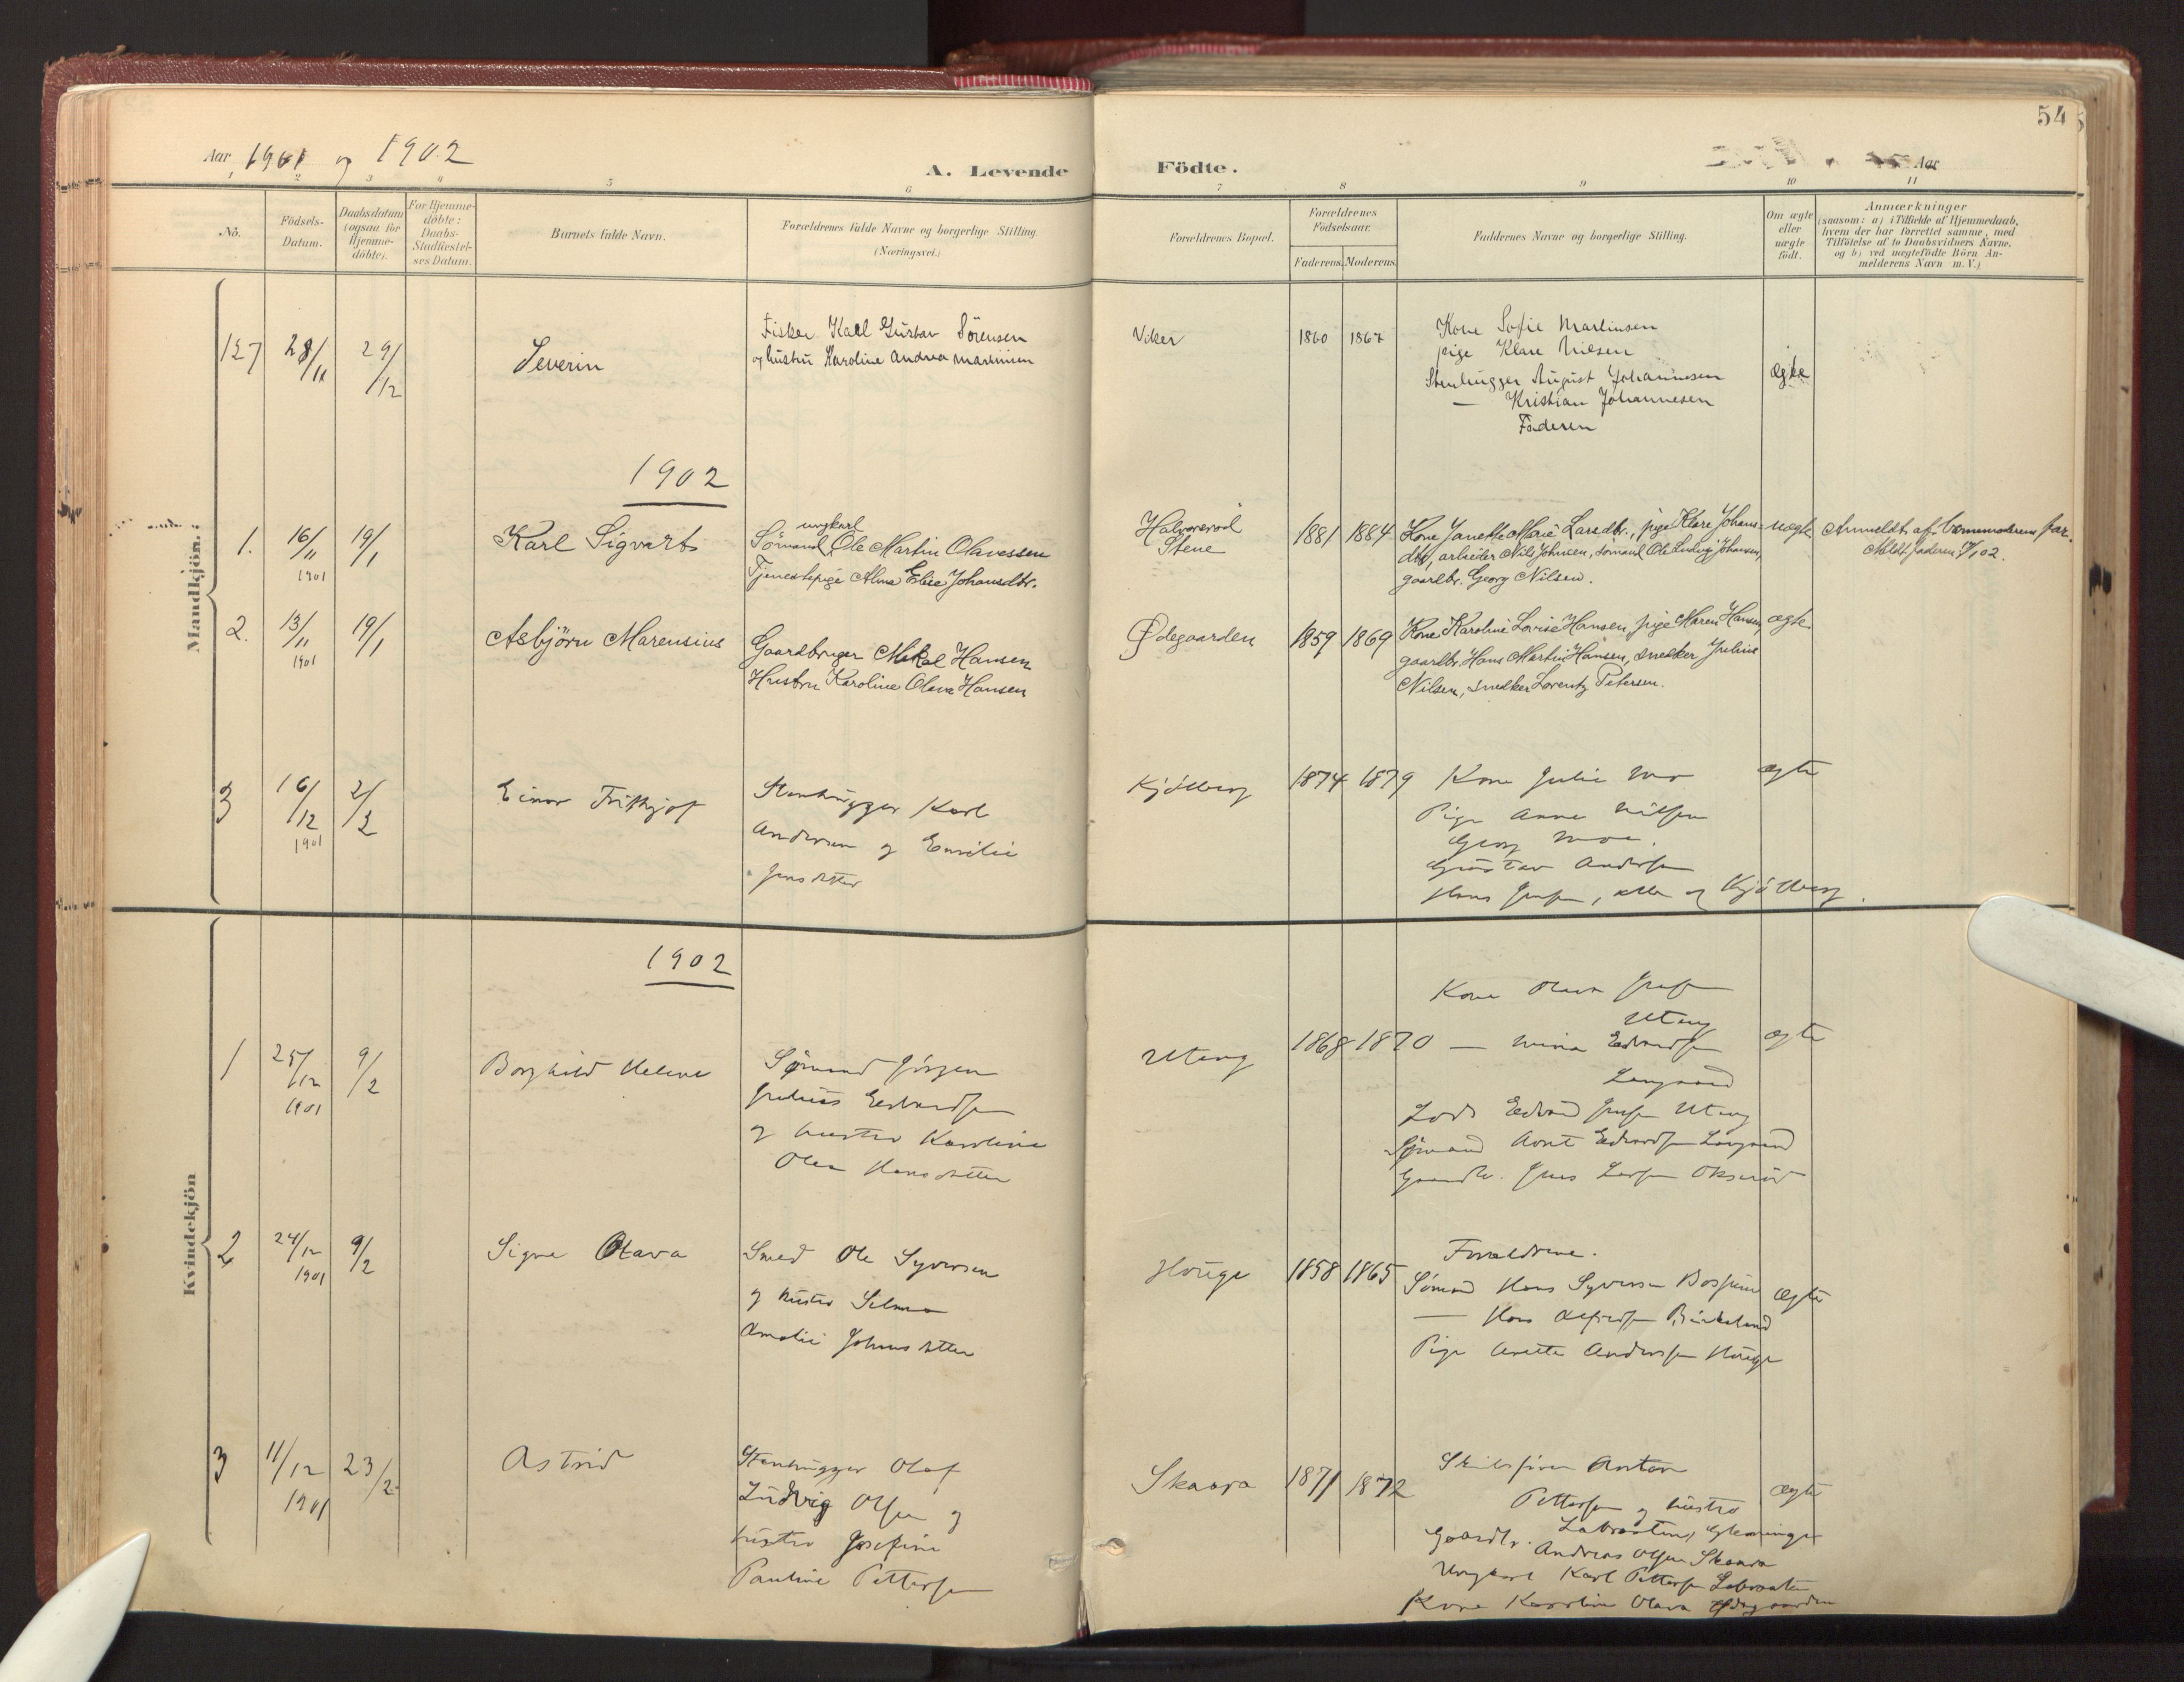 54
Aar 1901 og 1902
A. Levende Födte.
Aar
1 2 3 4 5 6 7 8 9 10 11
No.
Födsels-
Datum.
Daabsdatum
(ogsaa for
Hjemme-
döbte).
For Hjemme-
döbte:
Daabs-
Stadfæstel-
ses Datum.
Barnets fulde Navn.
Forældrenes fulde Navne og borgerlige Stilling
(Næringsvei.)
Forældrenes Bopæl.
Forældrenes
Födselsaar.
Faderens. Moderens.
Faddernes Navne og borgerlige Stilling.
Om ægte
eller
uægte
födt.
Anmærkninger
(saasom: a) i Tilfælde af Hjemmedaab,
hvem der har forrettet samme, med
Tilföielse af to Daabsvidners Navne,
og b) ved uægtefödte Börn An-
melderens Navn m. V.)
Mandkjön.
127
28/11
29/12
Severin
Fisker Karl Gustav Sörensen
og hustru Karoline Andrea Martinsen
Viker
1860 1867
Kone Sofie Martinsen
pige Klara Nilsen
Stenhugger August Johannesen
— Kristian Johannesen
Faderen
ægte
1902
1.
16/11
1901
19/1
Karl Sigvart
ungkarl
Sömand Ole Martin Olavessen
Tjenestepige Alma Elise Johansdtr.
Halvorsröd
Stene
1881 1884
Kone Janette Marie Larsdtr., pige Klara Johans-
dtr, arbeider Nils Johnsen, sömand Ole Ludvig Johansen,
gaardbr. Georg Nilsen.
uægte
Anmeldt af Barnemoderens far.
2.
13/11
1901
19/1
Asbjörn Marensius
Gaardbruger Mikal Hansen
Hustru Karoline Olava Hansen
Ødegaarden
1859 1869
Kone Karoline Lovise Hansen, pige Maren Hansen,
gaardbr. Hans Martin Hansen, snedker Juline
Nilsen, snedker Lorentz Petersen.
ægte
3
16/12
1901
2/2
Einar Fritjof
Stenhugger Karl
Andersen og Emilie
Jensdatter
Kjölberg
1874 1879
Kone Julie Moe
Pige Anna Nilsen
Georg Moe.
Gustav Andersen
Hans Jensen, alle af Kjölberg.
ægte
Kvindekjön
1902
1
25/12
1901
9/2
Borghild Helene
Sömand Jörgen
Julius Edvardsen
og hustru Karoline
Olea Hansdatter
Uteng
1868 1870
Kone Olava Jensen
Uteng
— Mina Edvardsen
Langaard
Lods Edvard Jensen Uteng
Sömand Aont Edvardsen Langaard
Gaardbr. Jens Larsen Okseröd
ægte
2
24/12
1901
9/2
Signe Olava
Smed Ole Syversen
og hustru Selma
Amalie Johansdatter
Houge
1858 1865
Forældrene.
Sömand Hans Syversen
— Hans Alfredsen Birkeland
Pige Anette Andersen Houge
ægte
3
11/12
1901
23/2
Astrid
Stenhugger Olaf
Ludvig Olsen og
hustru Josefine
Pauline Pettersen
Skaara
1871 1872
Skibsförer Anton
Pettersen og hustru
Labraaten,
Gaardbr. Andreas Olsen Skaara
Ungkarl Karl Pettersen Labraaten
Kone Karoline Olava Ødegaarden
ægte